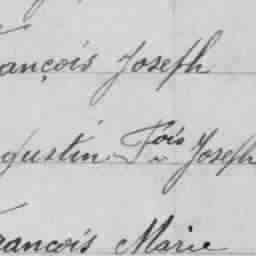 ançois Joseph
gustin Fois Joseph
rancois Marie